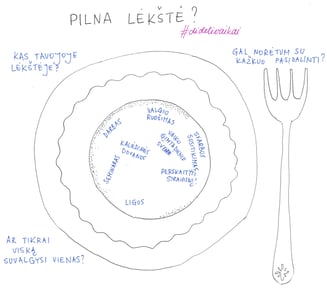 PILNA LĖKŠTĖ?
#didelivaikai
KAS TAVOJOJE
LĖKŠTĖJE?
GAL NORĖTUM SU
KAŽKUO PASIDALINTI?
VALGIO
RUOŠIMAS
DARBAS
VAIKO
GIMTADIENIO
ŠVENTĖ
SVARBUS
SUSITIKIMAS
KALĖDINĖS
DOVANOS
SEMINARAS
PERSKAITYTI
STRAIPSNĮ
LIGOS
AR TIKRAI
VISKĄ
SUVALGYSI VIENAS?